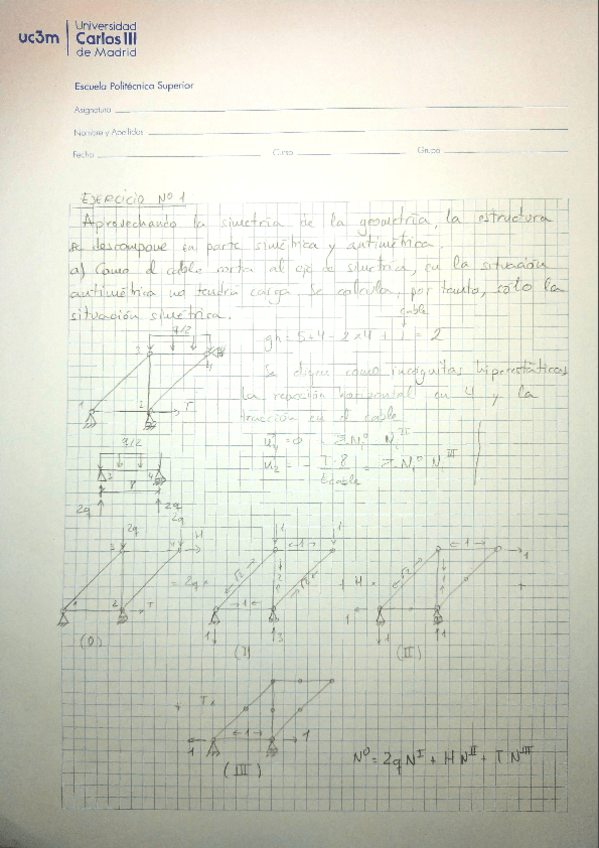 uc3m
Universidad
Carlos III
de Madrid
Escuela Politécnica Superior
Asignatura
Nombre y Apellidos
Fecha Curso Grupo
EJERCICIO Nº 1
Aprovechando la simetría de la geometría, la estructura
se descompone en parte simétrica y antimétrica.
a) Como el cable corta al eje de simetría, en la situación
antimétrica no tendrá carga. Se calcula, por tanto, sólo la
situación simétrica.
cable
q/2
gh = 5+4-2x4+1 = 2
Se eligen como incógnitas hiperestáticas
la reacción horizontal en 4 y la
tracción en el cable
3
1
2
T
q/2
3
4
8
2q
2q
2q
H
T
= 2q x
+ H x
(0)
(I)
(II)
+ T x
(III)
N⁰ = 2q Nᴵ + H Nᴵᴵ + T Nᴵᴵᴵ